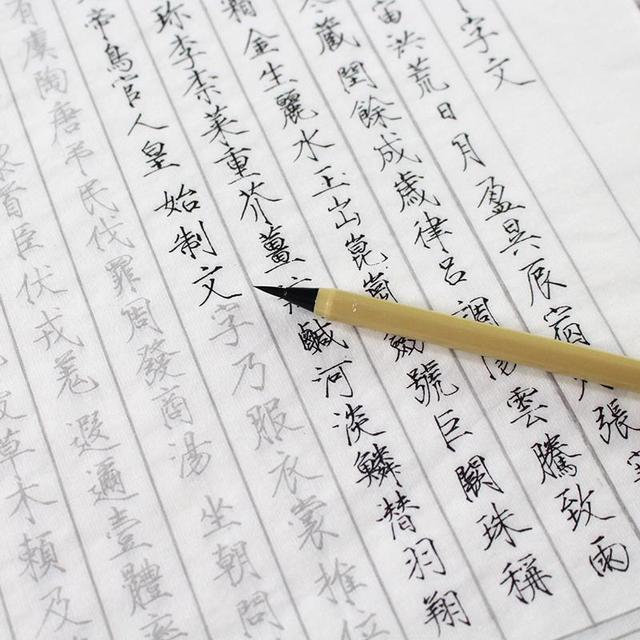 字文
宙洪荒日月盈昃辰宿張
藏閏餘成歲律呂調陽雲騰致雨
金生麗水玉出崑崗劍號巨闕珠稱
珍李柰菜重芥薑海鹹河淡鱗潛羽翔
帝鳥官人皇始制文字乃服衣裳推位
有虞陶唐弔民伐罪周發商湯坐朝問
黎首臣伏戎羌遐邇壹體
草木賴及